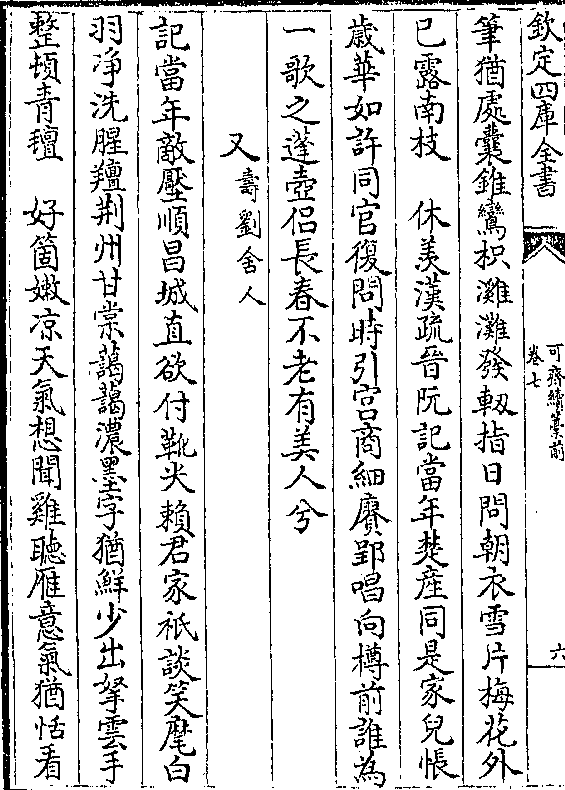 欽定四庫全書
可齋續藁前
卷七
六
筆猶處囊錐鸞枳灘灘發軔指日問朝衣雪片梅花外
已露南枝　休羨漢疏晉阮記當年楚産同是家兒悵
歳華如許同官復問時引宫商細賡郢唱向樽前誰為
一歌之蓬壺侣長春不老有美人兮
又壽劉舍人
記當年敵壓順昌城直欲付靴尖賴君家祇談笑麾白
羽凈洗腥羶荆州甘棠藹藹濃墨字猶鮮少出拏雲手
整頓青氊　好箇嫩凉天氣想聞雞聴雁意氣猶恬看